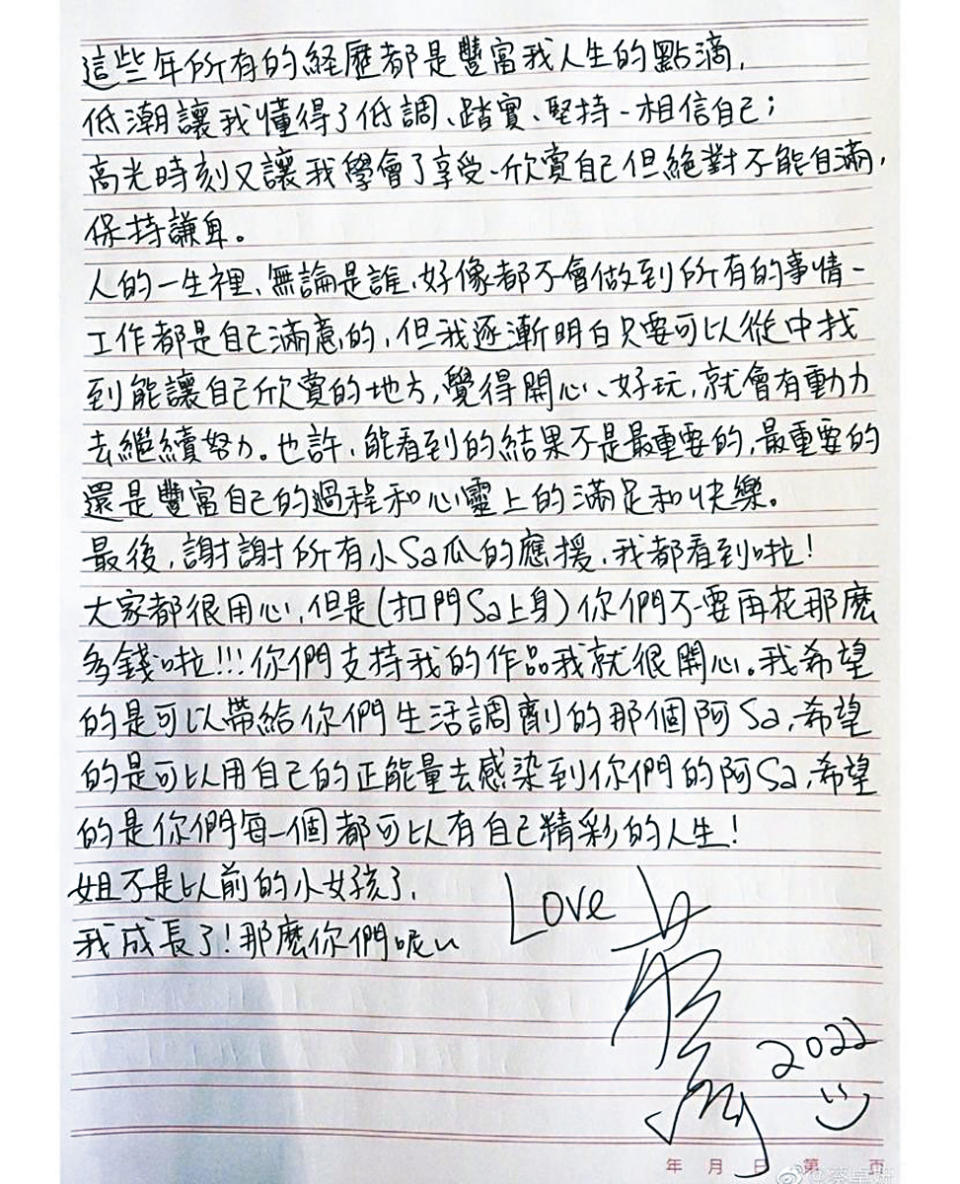 這些年所有的経歷都是豐富我人生的點滴,
低潮讓我懂得了低調、踏實、堅持、相信自己;
高光時刻又讓我學會了享受、欣賞自己但絕對不能自滿,
保持謙卑。
人的一生裡、無論是誰,好像都不會做到所有的事情、
工作都是自己滿意的,但我逐漸明白只要可以從中找
到能讓自己欣賞的地方,覺得開心、好玩,就會有動力
去繼續努力。也許,能看到的結果不是最重要的,最重要的
還是豐富自己的過程和心靈上的滿足和快樂。
最後,謝謝所有小Sa瓜的應援,我都看到啦!
大家都很用心,但是(扣門Sa上身)你們不要再花那麼
多錢啦!!!你們支持我的作品我就很開心。我希望
的是可以帶給你們生活調劑的那個阿Sa,希望
的是可以用自己的正能量去感染到你們的阿Sa,希望
的是你們每一個都可以有自己精彩的人生!
姐不是以前的小女孩了,
我成長了!那麼你們呢
Love
2022
年 月 日 第 頁
@蔡卓妍